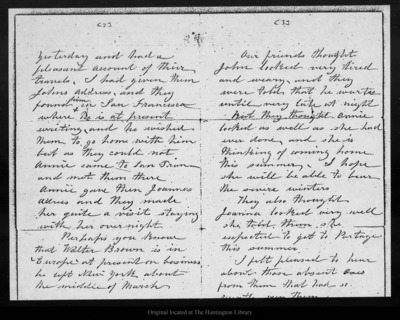 633
yesterday and had a
pleasant account of their
travels. I had given them
Johns address, and they
found him in San Francisco
where he is at present
writing, and he wished
them to go home with him
but as they could not
Annie came to San Fran
and met them there
Annie gave them Joannas
address and they made
her quite a visit staying
with her over night.
Perhaps you know
that Walter Brown is in
Europe at present on business
he left New York about
the middle of March
633
Our friends thought
John looked very tired
and weary, and they
were told that he writes
until very late at night
But they thought Annie
looked as well as she had
ever done, and she is
thinking of coming home
this summer, I hope
she will be able to bear
the severe winters
They also thought
Joanna looked very well
she told them she
expected to get to Portage
this summer
I felt pleased to hear
about those absent ones
from them that had so
Original located at The Huntington Library